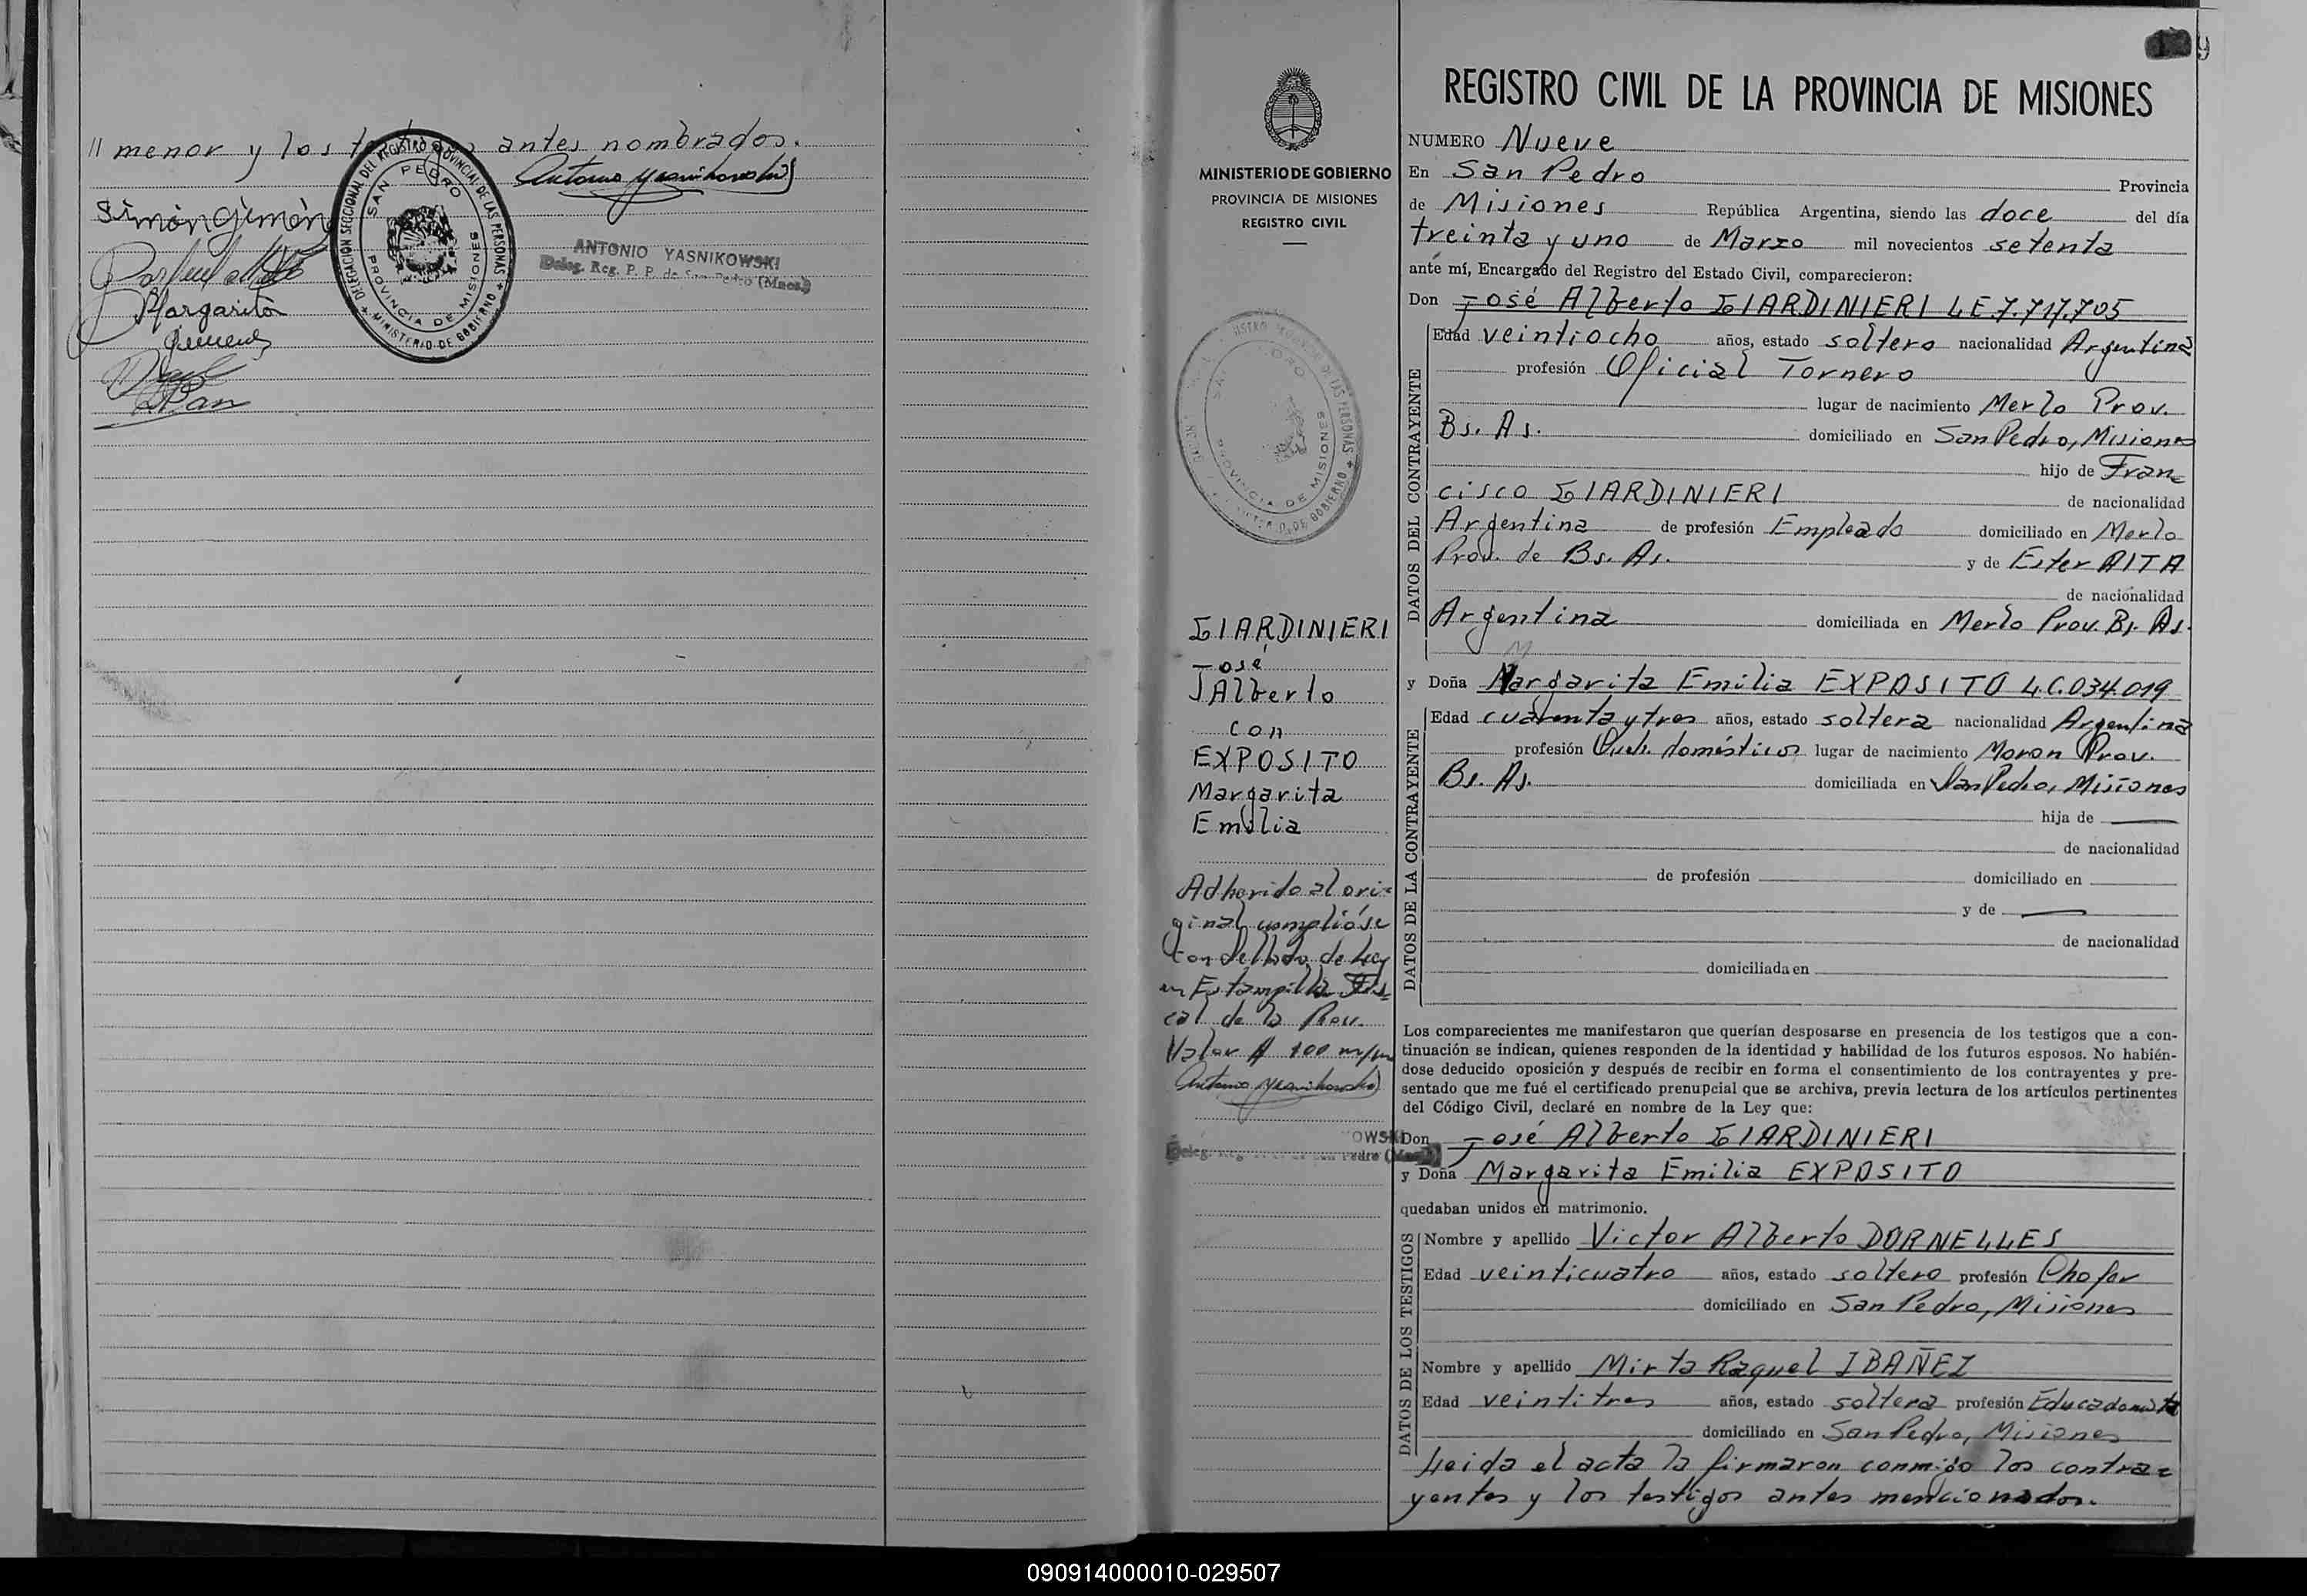 // menor y los testigos antes nombrados.
Antonio Yasnikowski
Simón Gimón
Margarita
ANTONIO YASNIKOWSKI
Deleg. Reg. P. P. de San Pedro (Mnes.)
DELEGACION SECCIONAL DEL REGISTRO PROVINCIAL DE LAS PERSONAS
MINISTERIO DE GOBIERNO
SAN PEDRO
PROVINCIA DE MISIONES
MINISTERIO DE GOBIERNO
PROVINCIA DE MISIONES
REGISTRO CIVIL
PROVINCIA DE MISIONES
GIARDINIERI
José
Alberto
con
EXPOSITO
Margarita
Emilia
Adherido al ori=
ginal cumplióse
con sellado de Ley
en Estampilla Fis=
cal de la Prov.
Valor $ 100 m/n
Antonio Yasnikowski
OWSKI
Deleg. Reg. P. P. de San Pedro (Mnes.)
REGISTRO CIVIL DE LA PROVINCIA DE MISIONES
NUMERO Nueve
En San Pedro Provincia
de Misiones República Argentina, siendo las doce del día
treinta y uno de Marzo mil novecientos setenta
ante mí, Encargado del Registro del Estado Civil, comparecieron:
Don José Alberto GIARDINIERI L.E.7.717.705
DATOS DEL CONTRAYENTE
Edad veintiocho años, estado soltero nacionalidad Argentina
profesión Oficial Tornero
lugar de nacimiento Merlo Prov.
Bs. As. domiciliado en San Pedro, Misiones
hijo de Fran=
cisco GIARDINIERI de nacionalidad
Argentina de profesión Empleado domiciliado en Merlo
Prov. de Bs. As. y de Ester AITA
de nacionalidad
Argentina domiciliada en Merlo Prov. Bs. As.
y Doña Margarita Emilia EXPOSITO L.C.034.019
DATOS DE LA CONTRAYENTE
Edad cuarenta y tres años, estado soltera nacionalidad Argentina
profesión Queh. domésticos lugar de nacimiento Moron Prov.
Bs. As. domiciliada en San Pedro, Misiones
hija de
de nacionalidad
de profesión domiciliado en
y de
de nacionalidad
domiciliada en
Los comparecientes me manifestaron que querían desposarse en presencia de los testigos que a con-
tinuación se indican, quienes responden de la identidad y habilidad de los futuros esposos. No habién-
dose deducido oposición y después de recibir en forma el consentimiento de los contrayentes y pre-
sentado que me fué el certificado prenupcial que se archiva, previa lectura de los artículos pertinentes
del Código Civil, declaré en nombre de la Ley que:
Don José Alberto GIARDINIERI
y Doña Margarita Emilia EXPOSITO
quedaban unidos en matrimonio.
DATOS DE LOS TESTIGOS
Nombre y apellido Victor Alberto DORNELLES
Edad veinticuatro años, estado soltero profesión Chofer
domiciliado en San Pedro, Misiones
Nombre y apellido Mirta Raquel IBAÑEZ
Edad veintitres años, estado soltera profesión Educadonista
domiciliado en San Pedro, Misiones
Leida el acta la firmaron conmigo los contra=
yentes y los testigos antes mencionados.
090914000010-029507